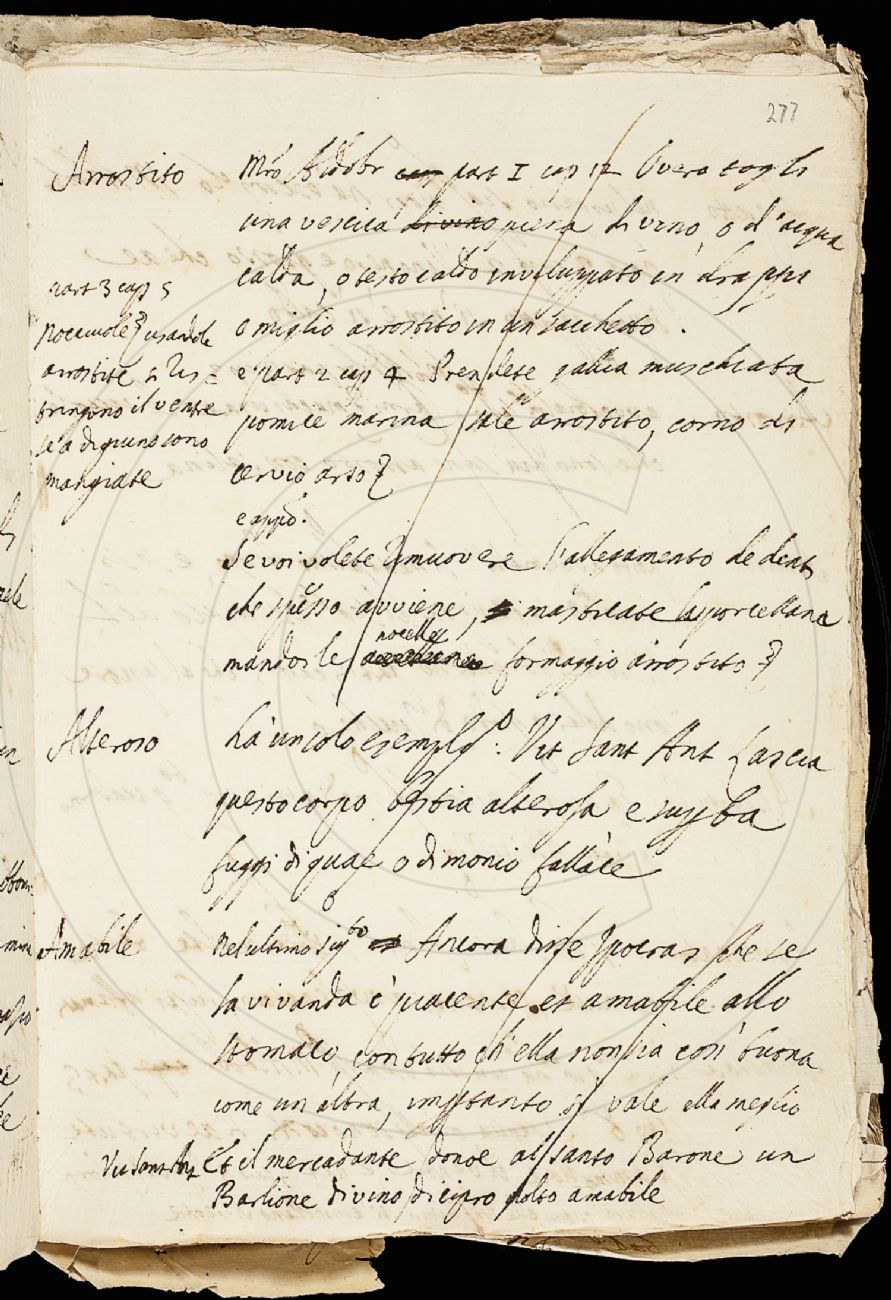 277
Arrostito
Mro Aldobr part I cap 12 Overo togli
una vescica di vino piena di vino, o d'acqua
calda, o testo caldo inviluppato in drappi
o miglio arrostito in un sacchetto.
e part 2 cap 4 Prendete gallia muschiata
pomice marina sale arrostito, corno di
cervio arso}
e appo.
Se voi volete rimuovere l'allegamento de denti
che spesso avviene, masticate la porcellana
nocelle
mandorle avellane formaggio arrostito}
part 3 cap 5
Nocciuole} usandole
arrostite
stringono il ventre
se a digiuno sono
mangiate
Alteroso
ha un solo esemplo: Vit Sant Ant Lascia
questo corpo bestia alterosa e superba
fuggi di quae o dimonio fallace
Amabile
nel ultimo sigto Ancora disse Ypocras che se
la vivanda è piacente et amabile allo
stomaco, con tutto ch'ella non sia così buona
come un'altra, impertanto si vale ella meglio
Vit Sant Ant Et il mercadante donoe al santo Barone un
Barlione di vino di cipro molto amabile